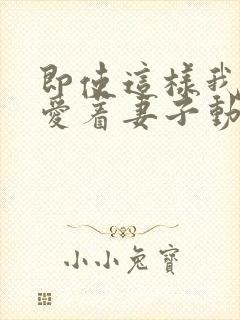 即使這樣我
愛着妻子動
小小兔寶